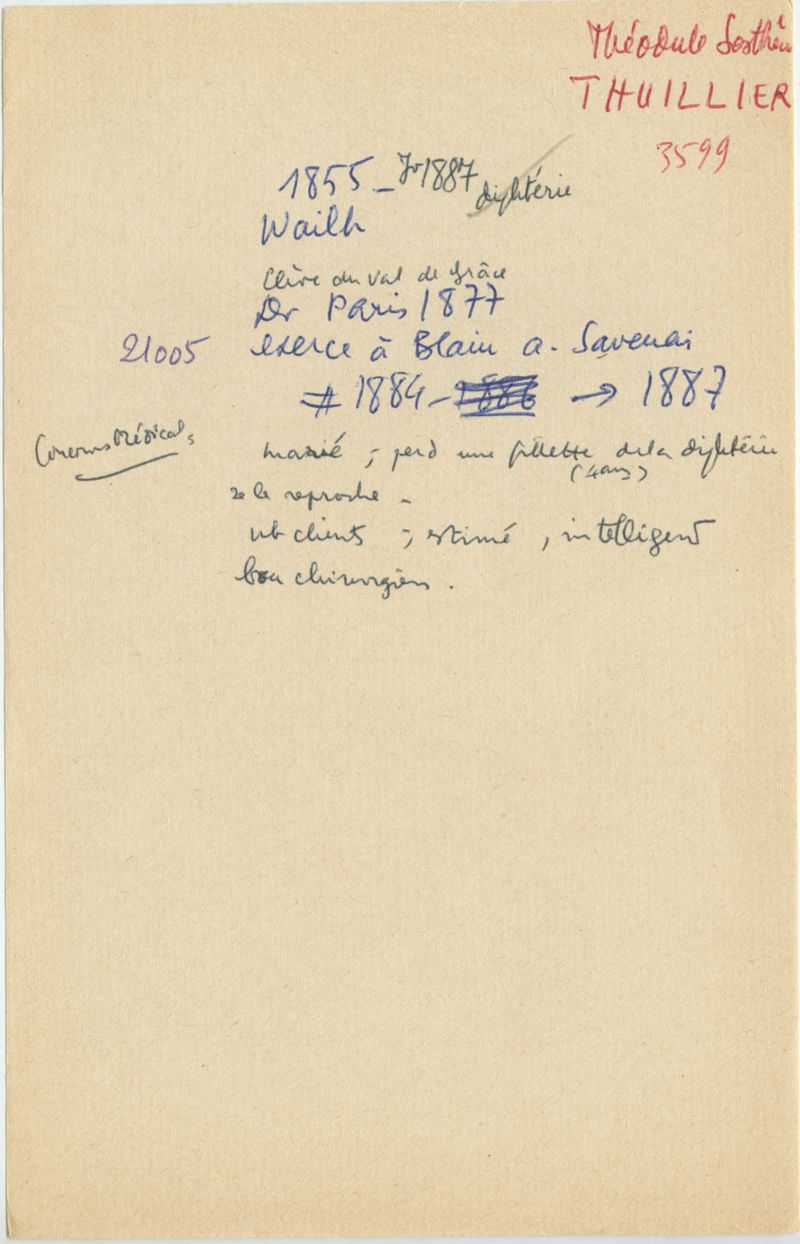 Théodule Sosthèn
THUILLIER
3599
1855 - Jr 1887 diphtérie
Wailh
élève du val de Grâce
Dr Paris 1877
21005 exerce à Blain a. Savenai
≠ 1884 - 1886 → 1887
Concours Médical
marié ; perd une fillette de la diphtérie
(4 ans)
se le reproche -
nb clients ; estimé, intelligent
bon chirurgien.